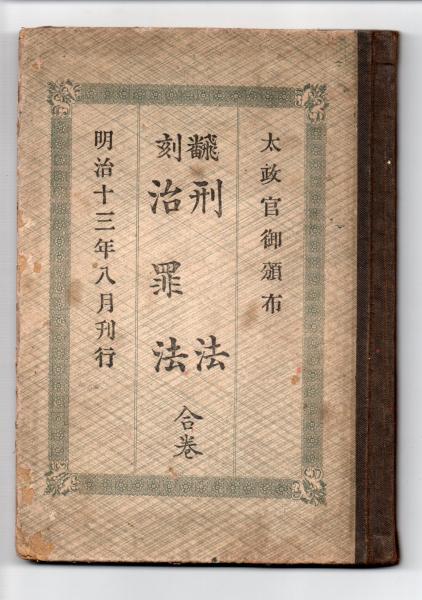 太政官御頒布
飜刻
刑法
治罪法
合巻
明治十三年八月刊行